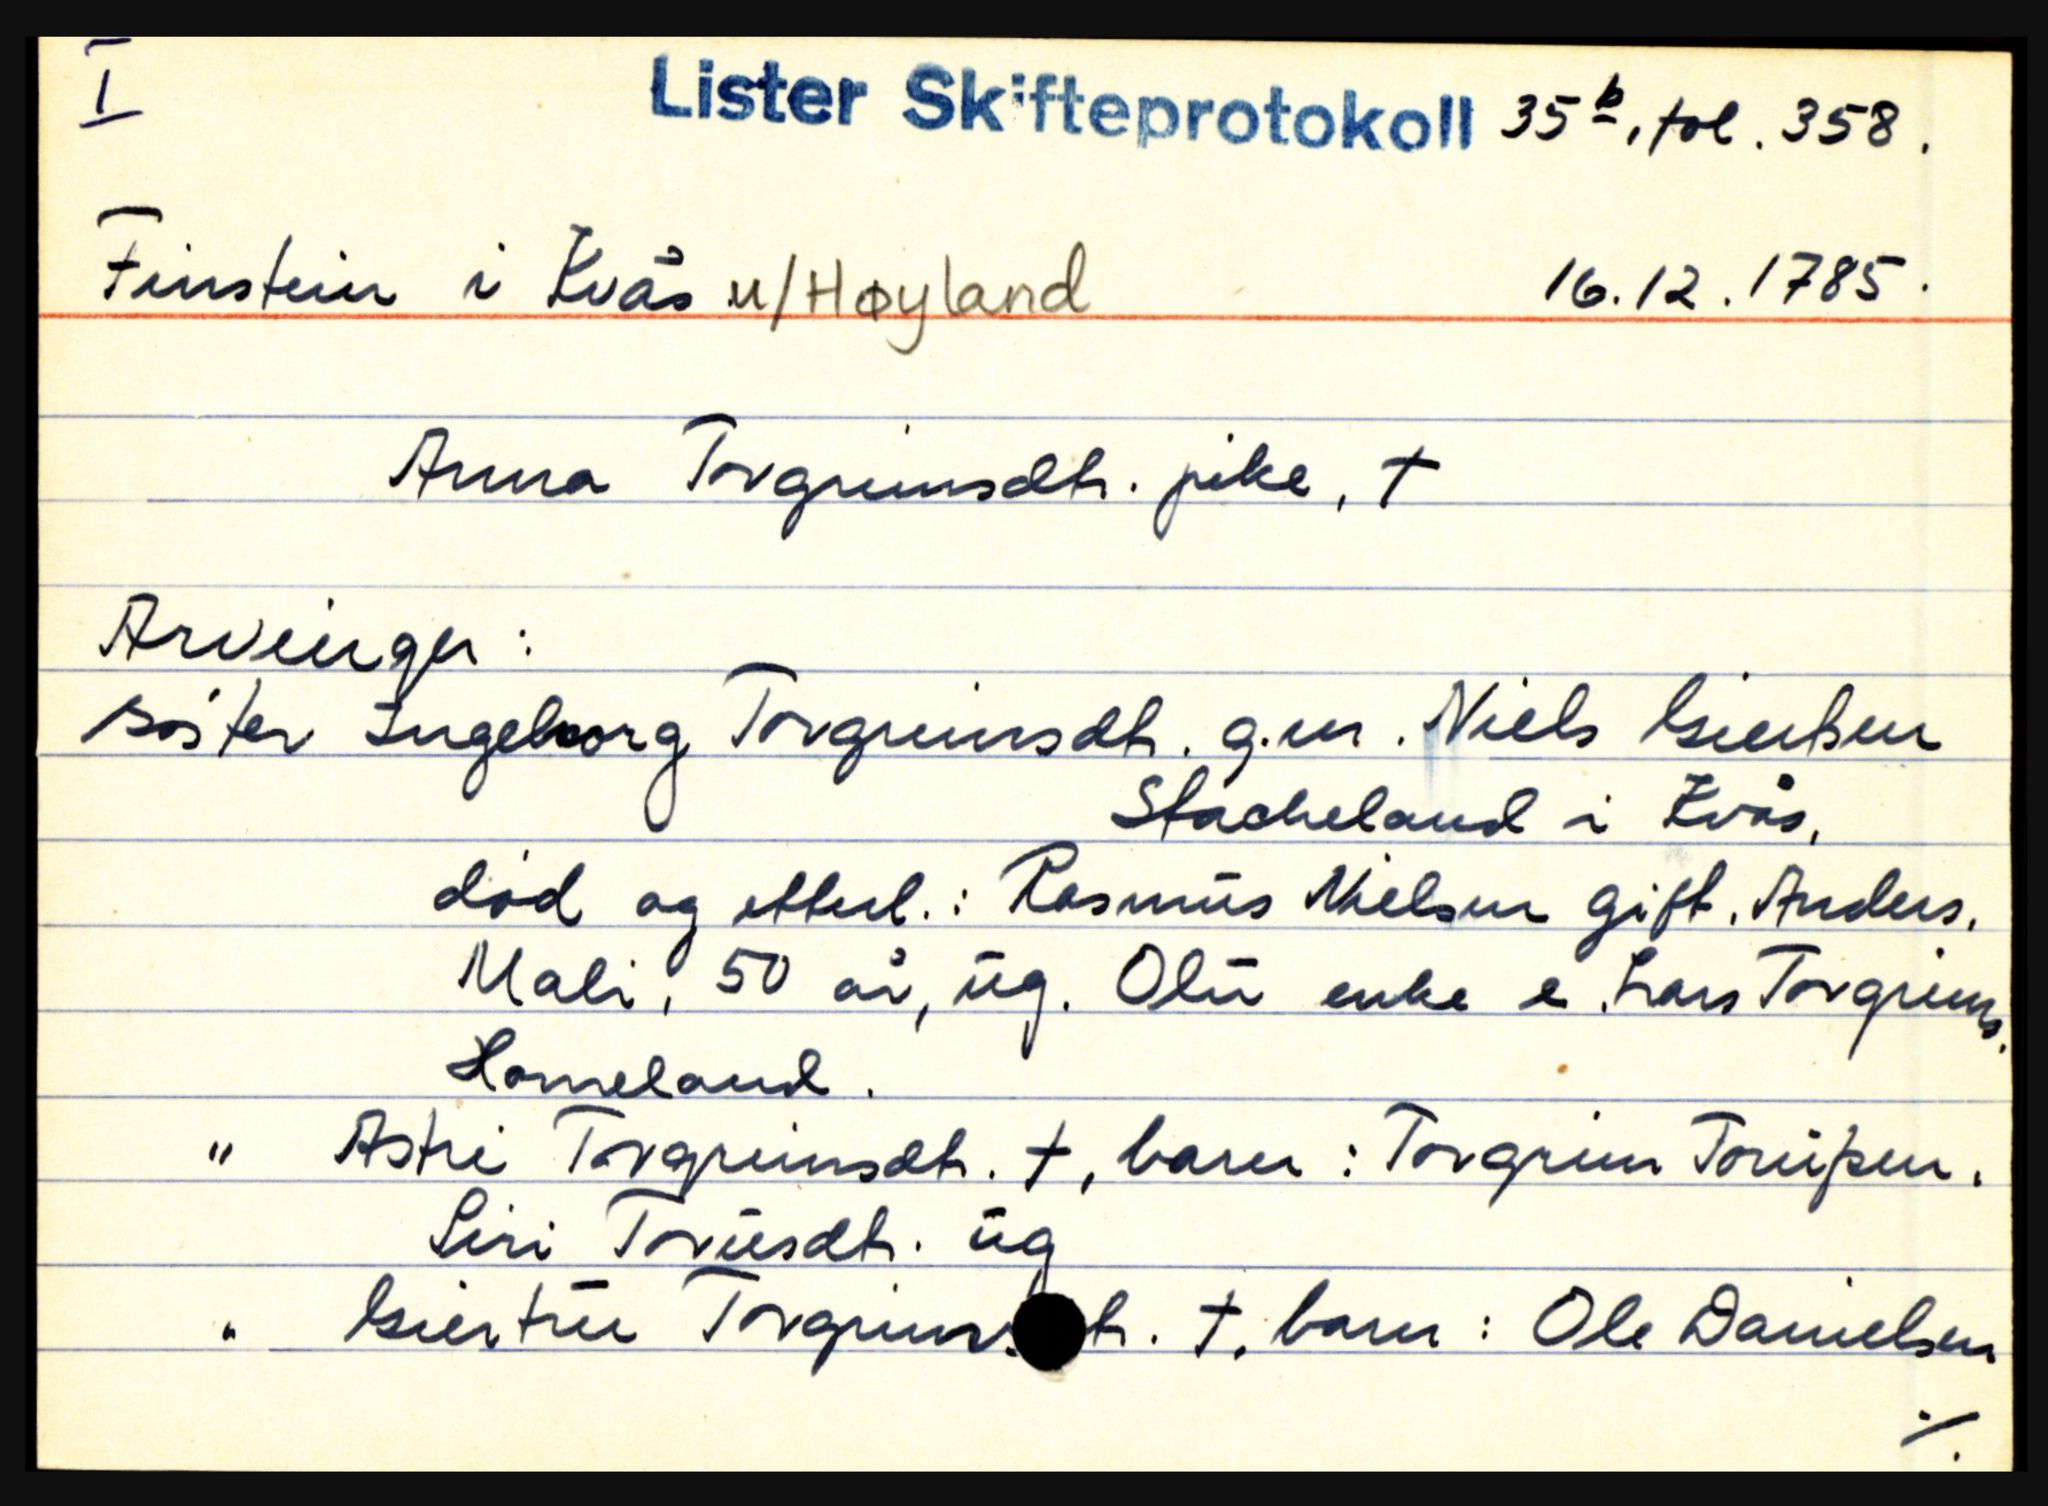 I
Lister Skifteprotokoll 35b, fol. 358.
Finstein i Kvås u/Høyland 16.12.1785.
Anna Torgrimsdtr. pike, †
Arvinger:
søster Ingeborg Torgrimsdtr. g.m. Niels Giertsen
Stacheland i Kvås,
död og etterl.: Rasmus Nielsen gift. Anders.
Mali, 50 år, ug. Olu enke e. Lars Torgrims.
Homeland.
" Astri Torgrimsdtr. †, barn: Torgrim
Siri ug
" Giertru †, barn: Ole Danielsen
./.